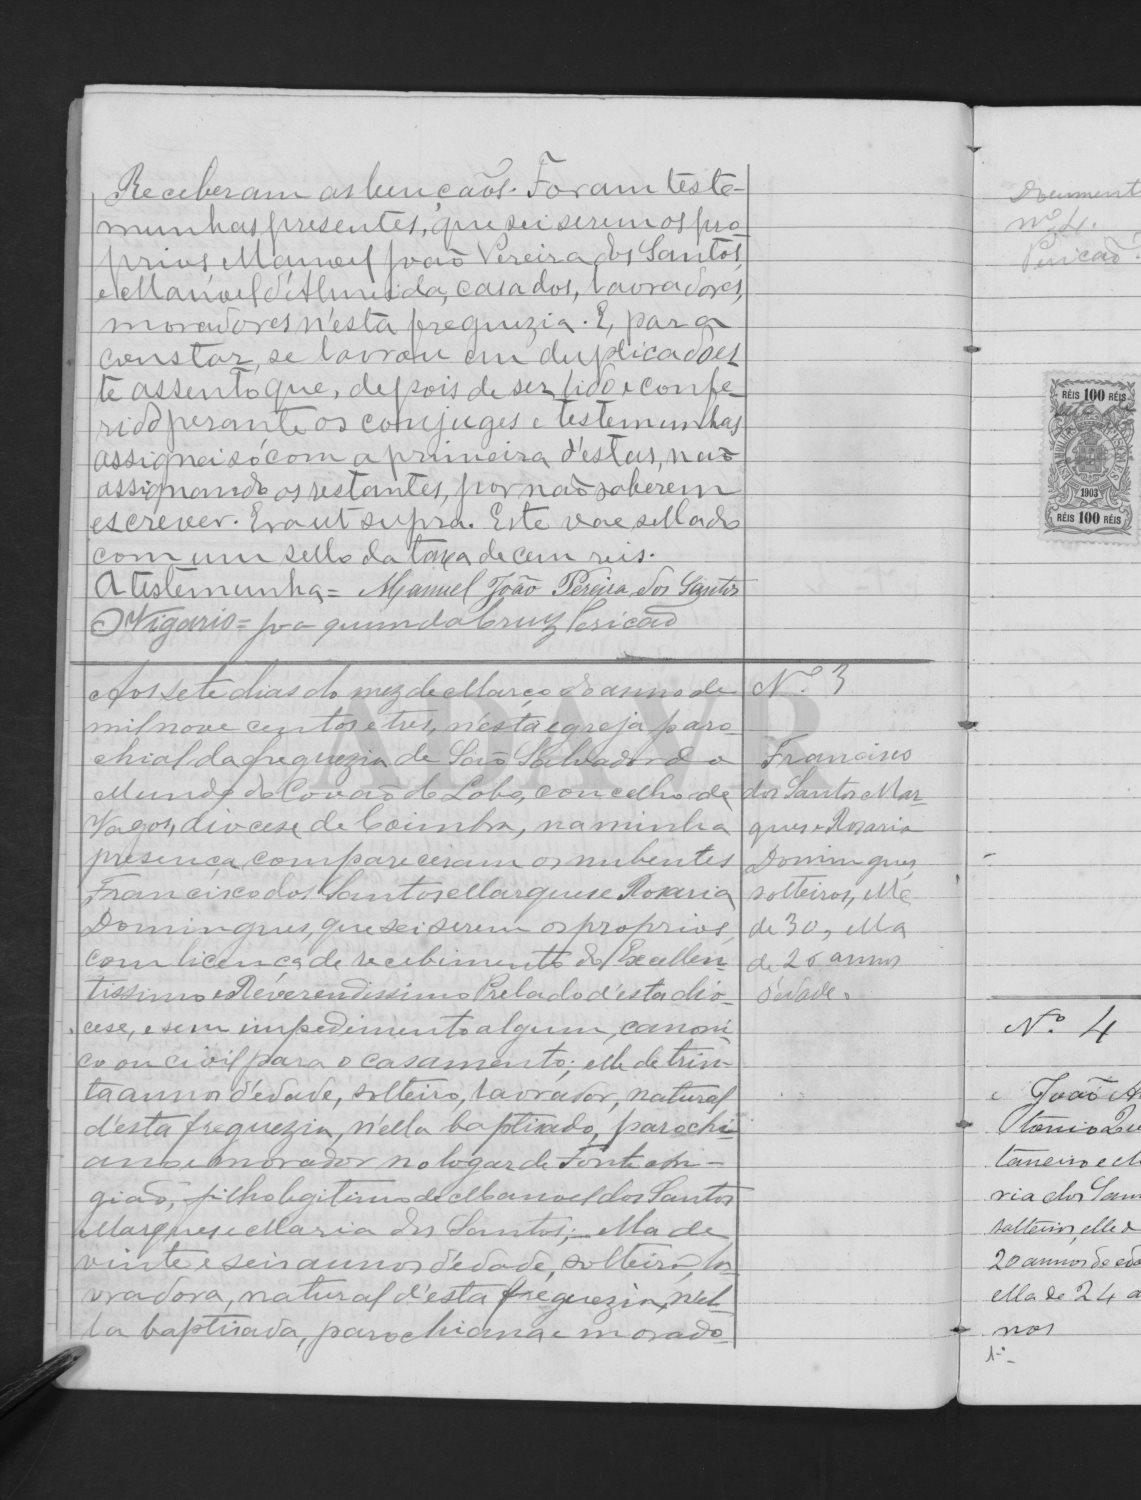 Receberam as bençãos. Foram teste-
munhas presentes, que sei serem os pro-
prios Manoel João Pereira dos Santos,
e Manoel d'Almeida, casados, lavradores,
moradores n'esta freguezia. E, para
constar, se lavrou em duplicado es-
te assento que, depois de ser lido e confe-
rido perante os conjuges e testemunhas
assignei só com a primeira d'estas, não
assignando os restantes, por não saberem
escrever. Era ut supra. Este vae sellado
com um sello da taxa de cem reis.
A testemunha = Manuel João Pereira dos Santos
O Vigario = Joaquim da Cruz Pericão
Aos sete dias do mez de Março do anno de
mil nove centos e tres, n'esta egreja paro-
chial da freguezia de São Salvador do
Mundo do Covão do Lobo, concelho de
Vagos, diocese de Coimbra, na minha
presença compareceram os nubentes
Francisco dos Santos Marques e Rosaria
Domingues, que sei serem os proprios,
com licença de recebimento do Excellen-
tissimo e Reverendissimo Prelado d'esta dio-
cese, e sem impedimento algum, canoni-
co ou civil para o casamento; elle de trin-
ta annos d'edade, solteiro, lavrador, natural
d'esta freguezia, n'ella baptisado, parochi-
ano e morador no logar de Fonte
gião, filho legitimo de Manoel dos Santos
Marques e Maria dos Santos; Ella de
vinte e seis annos d'edade, solteira, la-
vradora, natural d'esta freguezia, n'el-
la baptisada, parochiana e morado-
Nº 3
Francisco
dos Santos Mar-
ques e Rosaria
Domingues,
solteiros, elle
de 30, ella
de 26 annos
d'edade.
Document
nº 4.
Pericão
RÉIS 100 RÉIS
1903
RÉIS 100 RÉIS
Nº 4
João An
tonio
taneiro e M
ria dos San
solteiros, elle d
20 annos de eda
ella de 24 a
nos
ADAVR